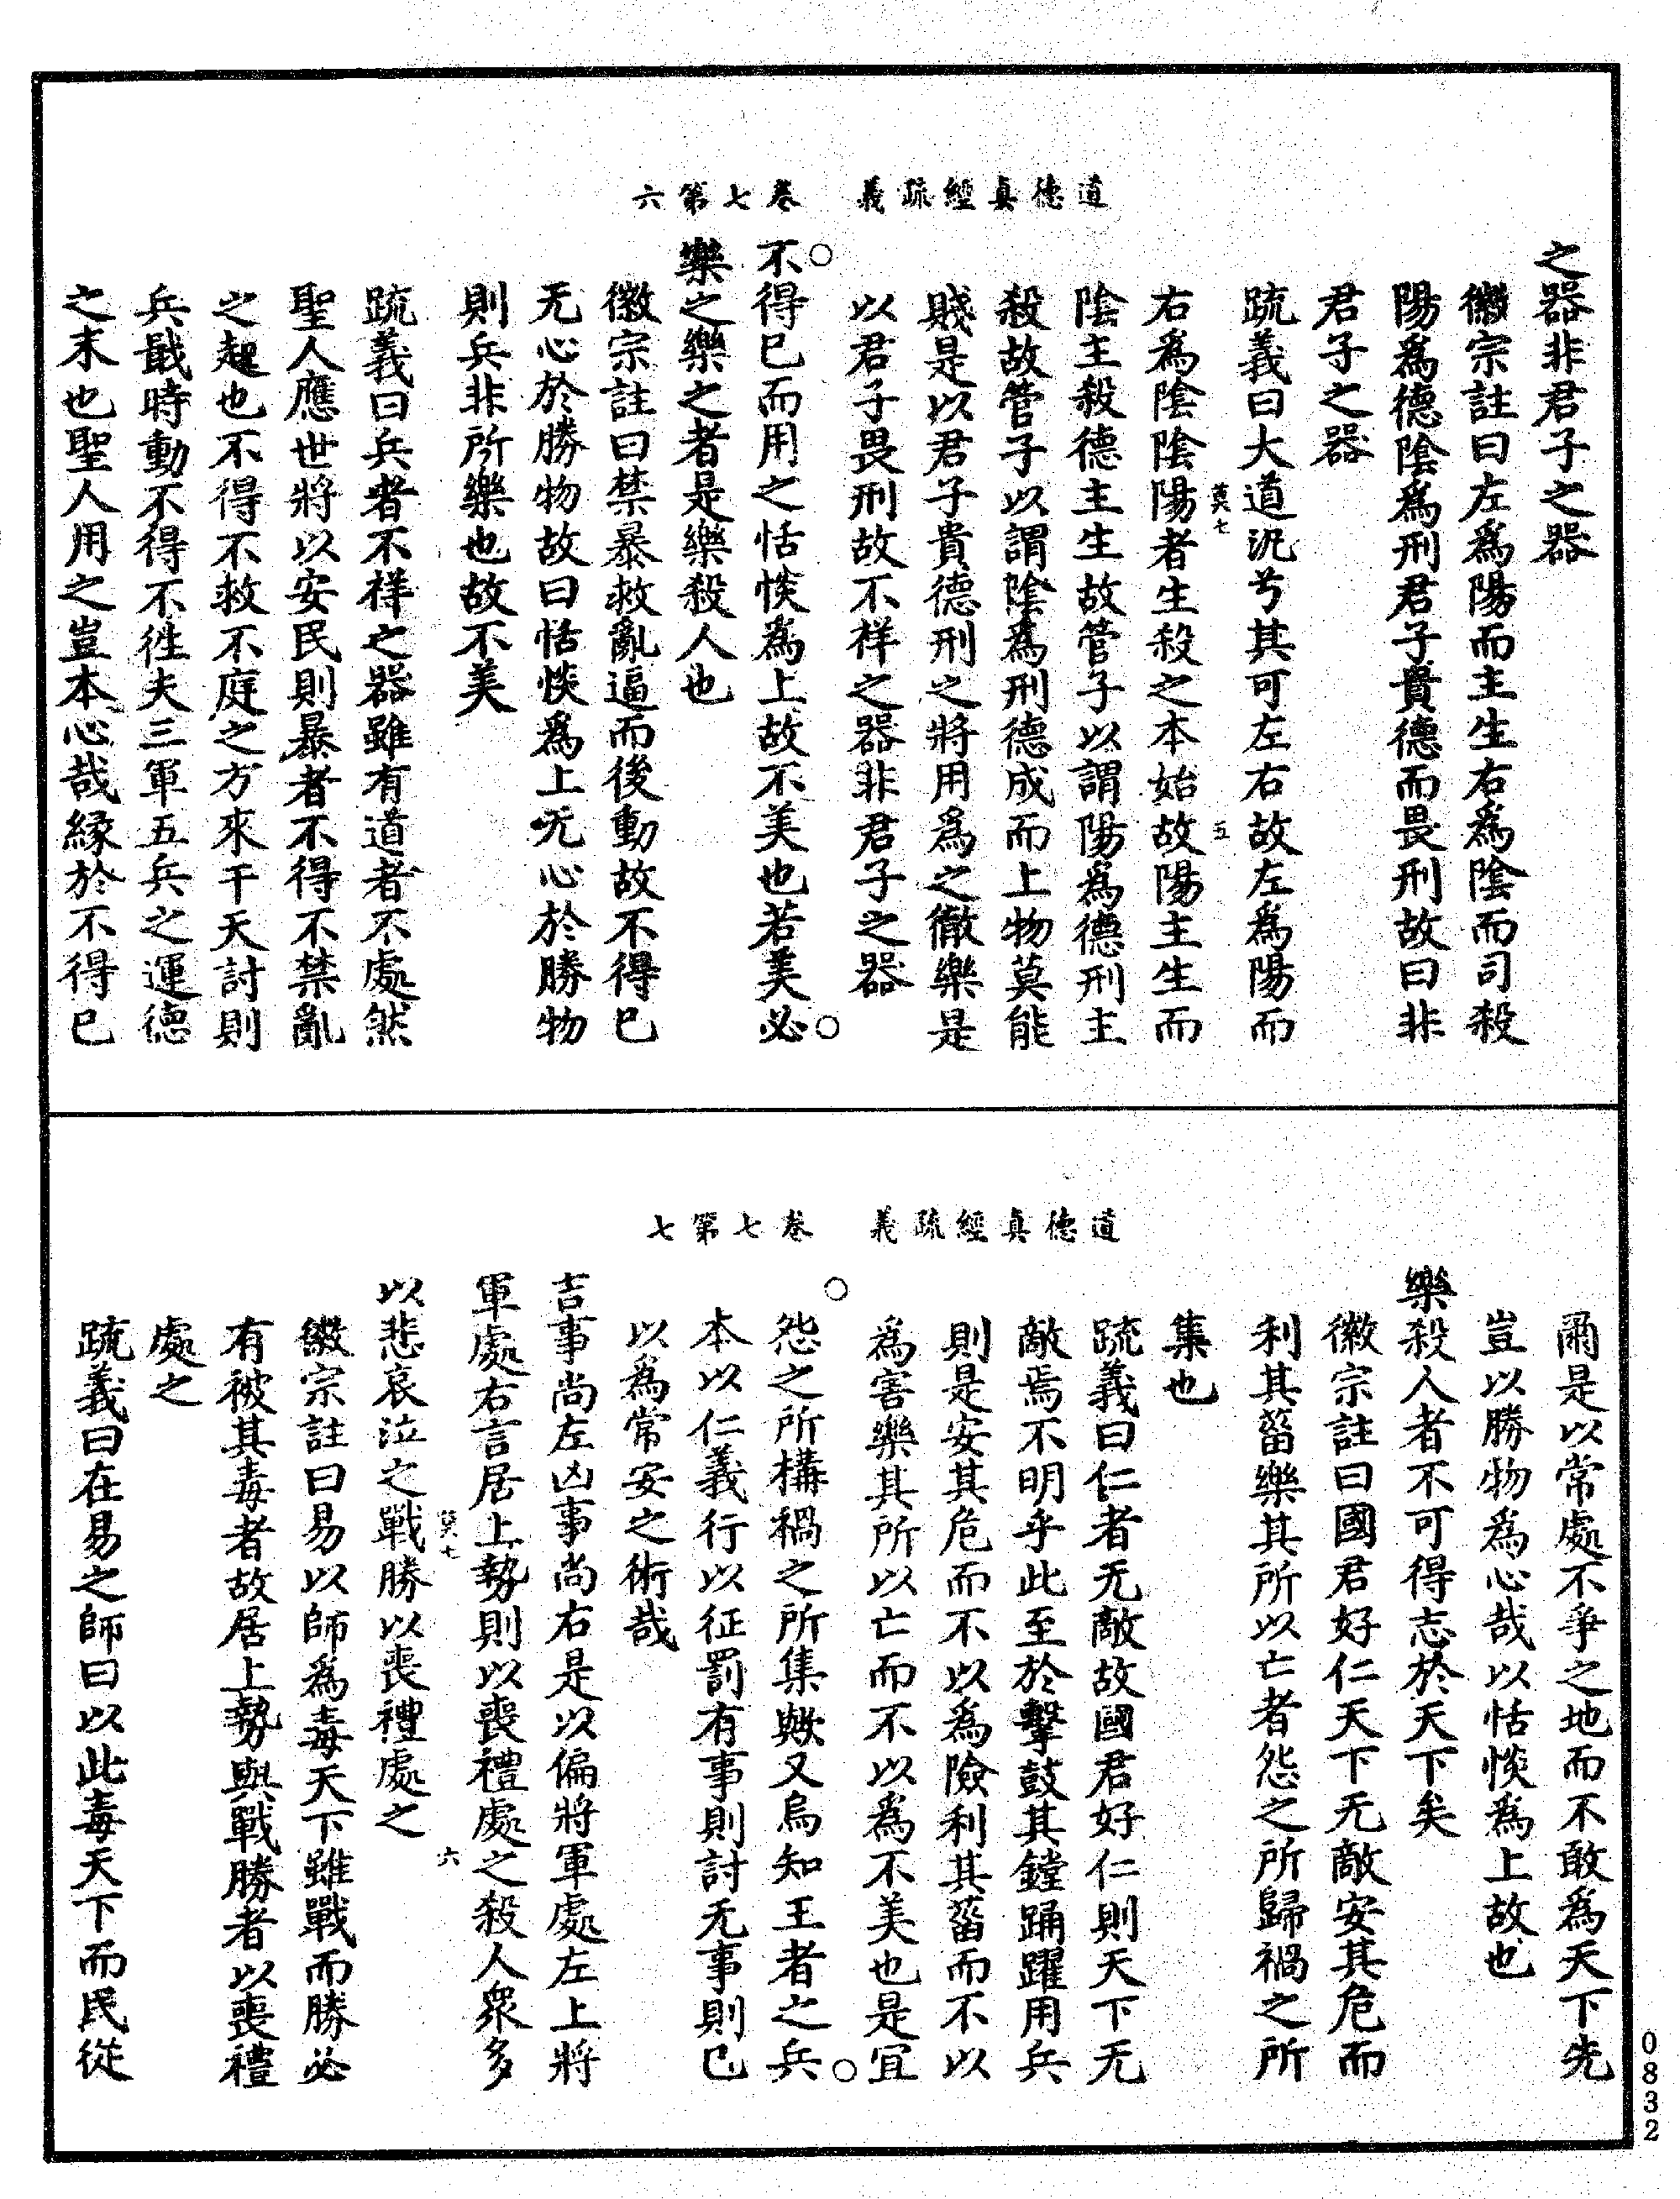 道德真經疏義　卷七第六
之器非君子之器
徽宗註曰左為陽而主生右為陰而司殺
陽為德陰為刑君子貴德而畏刑故曰非
君子之器
疏義曰大道汎兮其可左右故左為陽而
莫七　五
右為陰陰陽者生殺之本始故陽主生而
陰主殺德主生故管子以謂陽為德刑主
殺故管子以謂陰為刑德成而上物莫能
賤是以君子貴德刑之將用為之徹樂是
以君子畏刑故不祥之器非君子之器
不得已而用之恬惔為上故不美也若美必
樂之樂之者是樂殺人也
徽宗註曰禁暴救亂逼而後動故不得已
无心於勝物故曰恬惔為上无心於勝物
則兵非所樂也故不美
疏義曰兵者不祥之器雖有道者不處然
聖人應世將以安民則暴者不得不禁亂
之起也不得不救不庭之方來干天討則
兵戢時動不得不徃夫三軍五兵之運德
之末也聖人用之豈本心哉緣於不得已
道德真經疏義　卷七第七
爾是以常處不爭之地而不敢為天下先
豈以勝物為心哉以恬惔為上故也
樂殺人者不可得志於天下矣
徽宗註曰國君好仁天下无敵安其危而
利其菑樂其所以亡者怨之所歸禍之所
集也
疏義曰仁者无敵故國君好仁則天下无
敵焉不明乎此至於擊鼓其鏜踊躍用兵
則是安其危而不以為險利其菑而不以
為害樂其所以亡而不以為不美也是宜
怨之所構禍之所集歟又烏知王者之兵
本以仁義行以征罰有事則討无事則已
以為常安之術哉
吉事尚左凶事尚右是以偏將軍處左上將
軍處右言居上勢則以喪禮處之殺人眾多
莫七　六
以悲哀泣之戰勝以喪禮處之
徽宗註曰易以師為毒天下雖戰而勝必
有被其毒者故居上勢與戰勝者以喪禮
處之
疏義曰在易之師曰以此毒天下而民從
0832